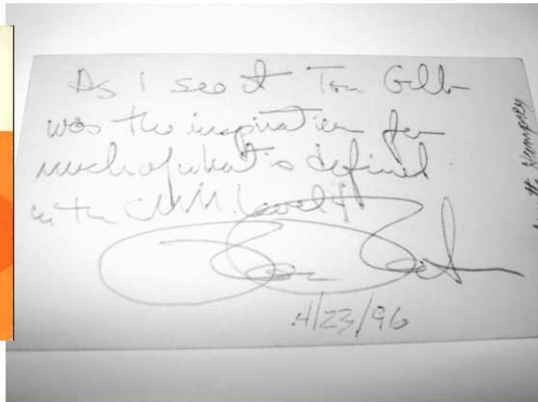 As I see it Tom Gilb
was the inspiration for
much of what is defined
in the CMM Level 4
4/23/96